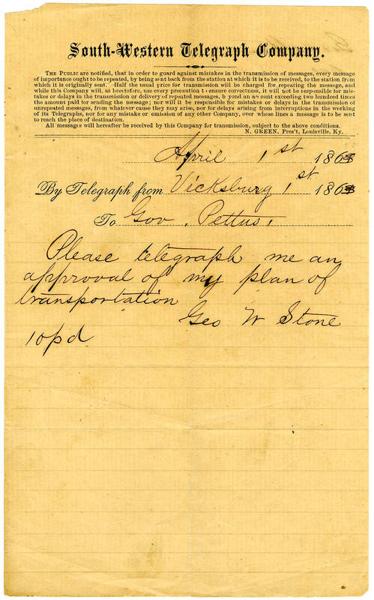 South-Western Telegraph Company.
THE PUBLIC are notified, that in order to guard against mistakes in the transmission of messages, every message
of importance ought to be repeated, by being sent back from the station at which it is to be received, to the station from
which it is originally sent. Half the usual price for transmission will be charged for repeating the message, and
while this Company will, as heretofore, use every precaution to ensure correctness, it will not be responsible for mis-
takes or delays in the transmission or delivery of repeated messages, beyond an amount exceeding two hundred times
the amount paid for sending the message; nor will it be responsible for mistakes or delays in the transmission of
unrepeated messages, from whatever cause they may arise, nor for delays arising from interruptions in the working
of its Telegraphs, nor for any mistake or omission of any other Company, over whose lines a message is to be sent
to reach the place of destination.
All messages will hereafter be received by this Company for transmission, subject to the above conditions.
N. GREEN, Pres't, Louisville, Ky.
April 1st 1863
By Telegraph from Vicksburg 1st 1863
To Gov. Pettus.
Please telegraph me an
approval of my plan of
transportation
Geo W Stone
10pd